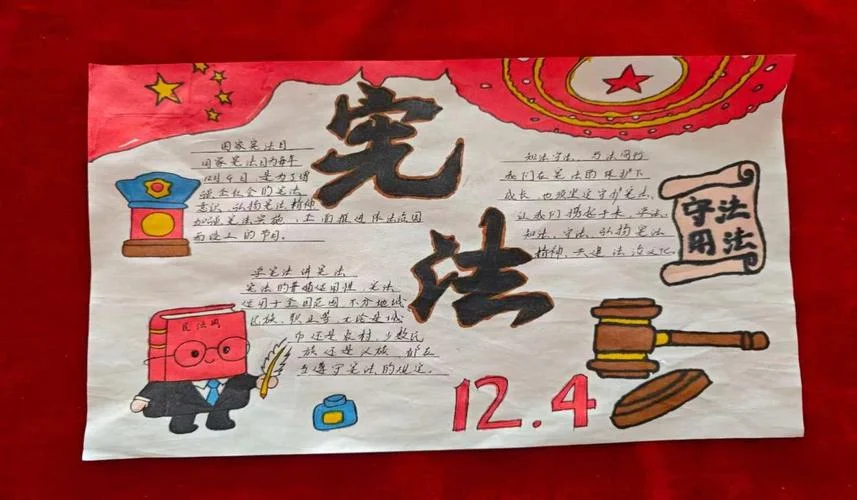 宪
法
国家宪法日
国家宪法日为每年
12月4日,是为了增
强全社会的宪法
意识,弘扬宪法精神,
加强宪法实施,全面推进依法治国
而设立的节日。
知法守法,与法同行
我们在宪法的保护下
成长,也须坚定守护宪法,
让我们携起手来,学法,
知法,守法,弘扬宪法
精神,共建法治文化。
守法
用法
学宪法 讲宪法
宪法的普遍使用性,宪法
使用于全国范围,不分地域
民族、职业等,无论是城
市还是农村,少数民
族还是汉族,都应
当遵守宪法的规定。
民法典
12.4